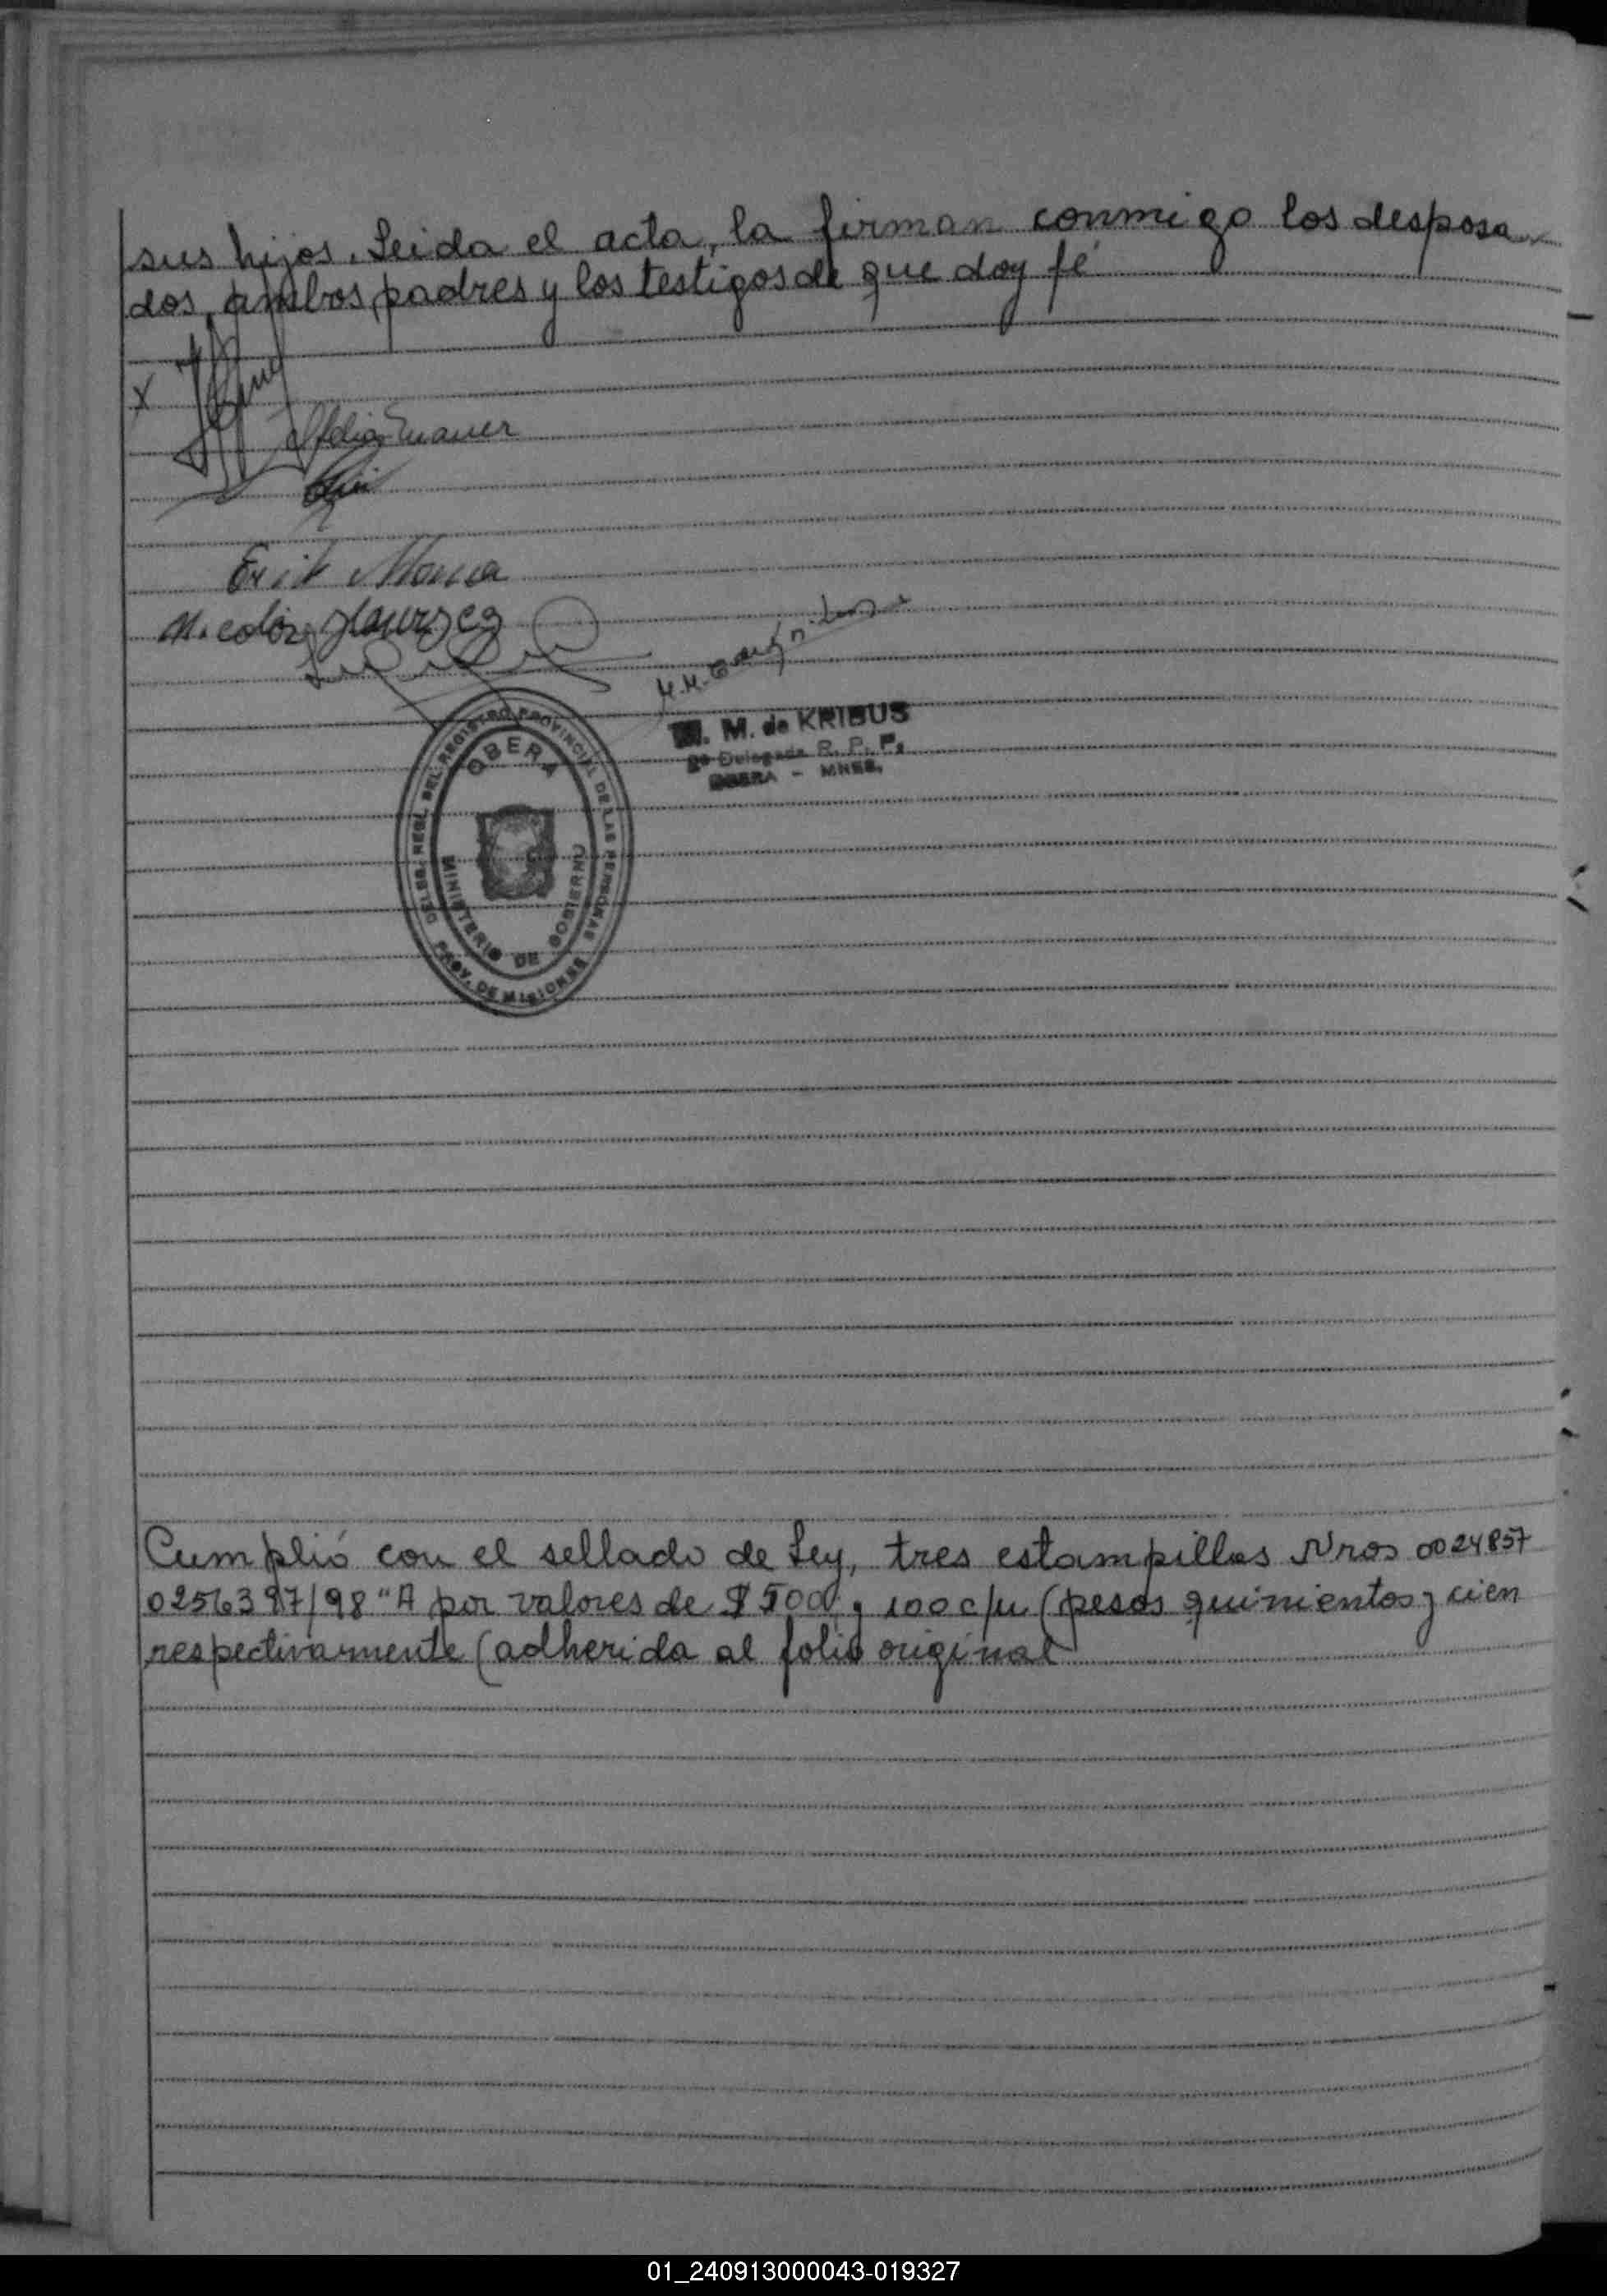 sus hijos. Leida el acta, la firman conmigo los desposa
dos, ambos padres y los testigos de que doy fé
X
Erik
M. M. de KRIBUS
2ª Delegada R. P. P.
OBERA - MNES.
DELEG. REGL. DEL REGISTRO PROVINCIAL DE LAS PERSONAS
OBERA
MINISTERIO DE GOBIERNO
PROV. DE MISIONES
Cumplió con el sellado de Ley, tres estampillas Nros 0024857
0256397/98 "A por valores de $ 500 y 100 c/u (pesos quinientos y cien
respectivamente (adherida al folio original
01_240913000043-019327